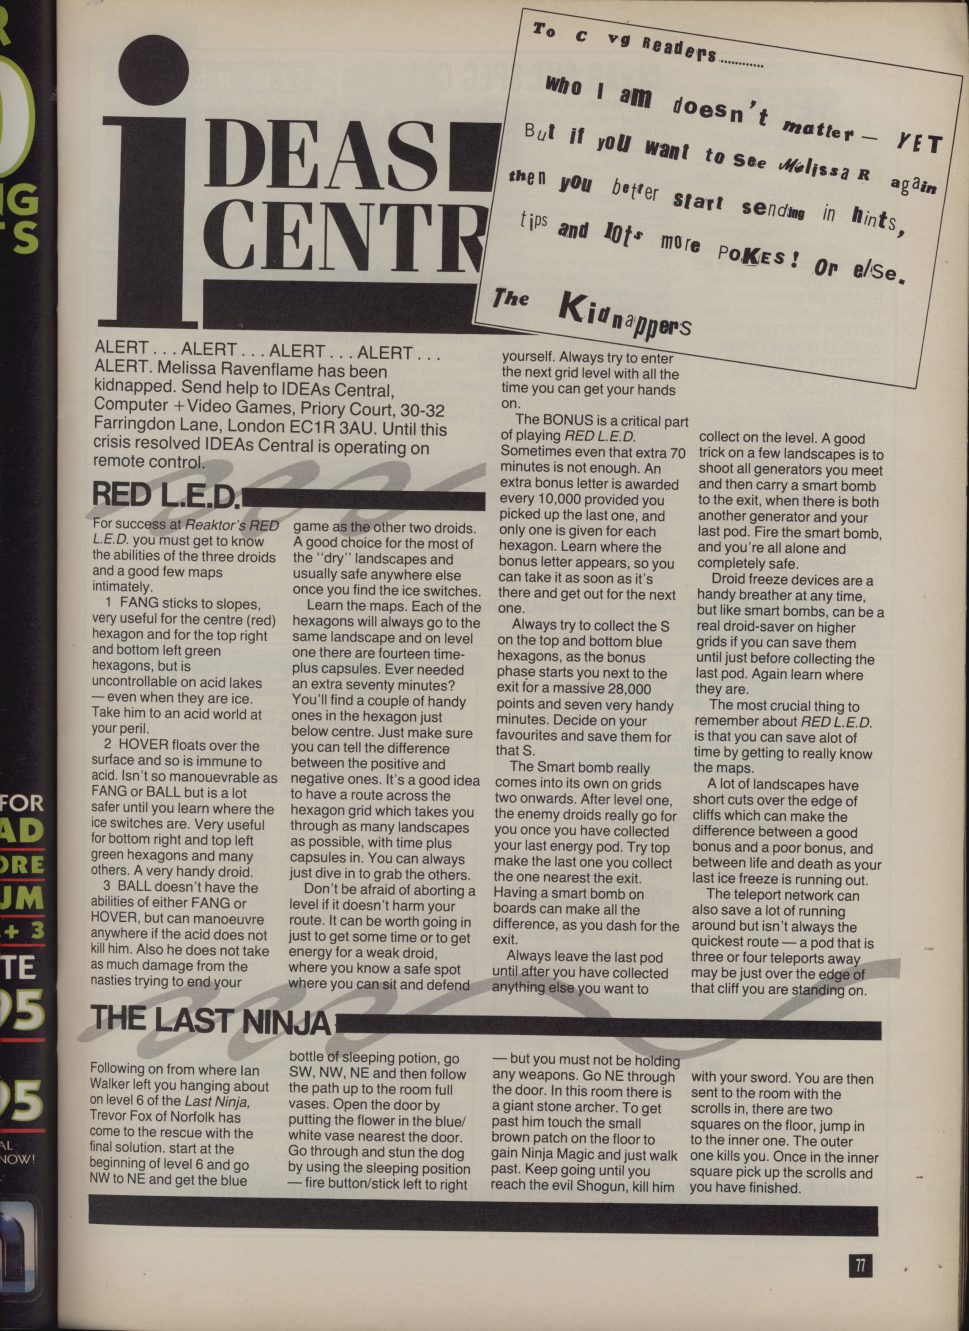 R
0
NG
TS
FOR
AD
ORE
UM
+ 3
TE
95
95
AL
NOW!
iDEAS
CENTR
To C vg Readers............
who I am doesn't matter — YET
But if you want to see Melissa R again
then you better start sending in hints,
tips and lots more POKES! Or else.
The Kidnappers
ALERT . . . ALERT . . . ALERT . . . ALERT . . .
ALERT. Melissa Ravenflame has been
kidnapped. Send help to IDEAs Central,
Computer + Video Games, Priory Court, 30-32
Farringdon Lane, London EC1R 3AU. Until this
crisis resolved IDEAs Central is operating on
remote control.
RED L.E.D.
For success at Reaktor's RED
L.E.D. you must get to know
the abilities of the three droids
and a good few maps
intimately.
1 FANG sticks to slopes,
very useful for the centre (red)
hexagon and for the top right
and bottom left green
hexagons, but is
uncontrollable on acid lakes
— even when they are ice.
Take him to an acid world at
your peril.
2 HOVER floats over the
surface and so is immune to
acid. Isn't so manouevrable as
FANG or BALL but is a lot
safer until you learn where the
ice switches are. Very useful
for bottom right and top left
green hexagons and many
others. A very handy droid.
3 BALL doesn't have the
abilities of either FANG or
HOVER, but can manoeuvre
anywhere if the acid does not
kill him. Also he does not take
as much damage from the
nasties trying to end your
game as the other two droids.
A good choice for the most of
the "dry" landscapes and
usually safe anywhere else
once you find the ice switches.
Learn the maps. Each of the
hexagons will always go to the
same landscape and on level
one there are fourteen time-
plus capsules. Ever needed
an extra seventy minutes?
You'll find a couple of handy
ones in the hexagon just
below centre. Just make sure
you can tell the difference
between the positive and
negative ones. It's a good idea
to have a route across the
hexagon grid which takes you
through as many landscapes
as possible, with time plus
capsules in. You can always
just dive in to grab the others.
Don't be afraid of aborting a
level if it doesn't harm your
route. It can be worth going in
just to get some time or to get
energy for a weak droid,
where you know a safe spot
where you can sit and defend
yourself. Always try to enter
the next grid level with all the
time you can get your hands
on.
The BONUS is a critical part
of playing RED L.E.D.
Sometimes even that extra 70
minutes is not enough. An
extra bonus letter is awarded
every 10,000 provided you
picked up the last one, and
only one is given for each
hexagon. Learn where the
bonus letter appears, so you
can take it as soon as it's
there and get out for the next
one.
Always try to collect the S
on the top and bottom blue
hexagons, as the bonus
phase starts you next to the
exit for a massive 28,000
points and seven very handy
minutes. Decide on your
favourites and save them for
that S.
The Smart bomb really
comes into its own on grids
two onwards. After level one,
the enemy droids really go for
you once you have collected
your last energy pod. Try top
make the last one you collect
the one nearest the exit.
Having a smart bomb on
boards can make all the
difference, as you dash for the
exit.
Always leave the last pod
until after you have collected
anything else you want to
collect on the level. A good
trick on a few landscapes is to
shoot all generators you meet
and then carry a smart bomb
to the exit, when there is both
another generator and your
last pod. Fire the smart bomb,
and you're all alone and
completely safe.
Droid freeze devices are a
handy breather at any time,
but like smart bombs, can be a
real droid-saver on higher
grids if you can save them
until just before collecting the
last pod. Again learn where
they are.
The most crucial thing to
remember about RED L.E.D.
is that you can save alot of
time by getting to really know
the maps.
A lot of landscapes have
short cuts over the edge of
cliffs which can make the
difference between a good
bonus and a poor bonus, and
between life and death as your
last ice freeze is running out.
The teleport network can
also save a lot of running
around but isn't always the
quickest route — a pod that is
three or four teleports away
may be just over the edge of
that cliff you are standing on.
THE LAST NINJA
Following on from where Ian
Walker left you hanging about
on level 6 of the Last Ninja,
Trevor Fox of Norfolk has
come to the rescue with the
final solution. start at the
beginning of level 6 and go
NW to NE and get the blue
bottle of sleeping potion, go
SW, NW, NE and then follow
the path up to the room full
vases. Open the door by
putting the flower in the blue/
white vase nearest the door.
Go through and stun the dog
by using the sleeping position
— fire button/stick left to right
— but you must not be holding
any weapons. Go NE through
the door. In this room there is
a giant stone archer. To get
past him touch the small
brown patch on the floor to
gain Ninja Magic and just walk
past. Keep going until you
reach the evil Shogun, kill him
with your sword. You are then
sent to the room with the
scrolls in, there are two
squares on the floor, jump in
to the inner one. The outer
one kills you. Once in the inner
square pick up the scrolls and
you have finished.
77